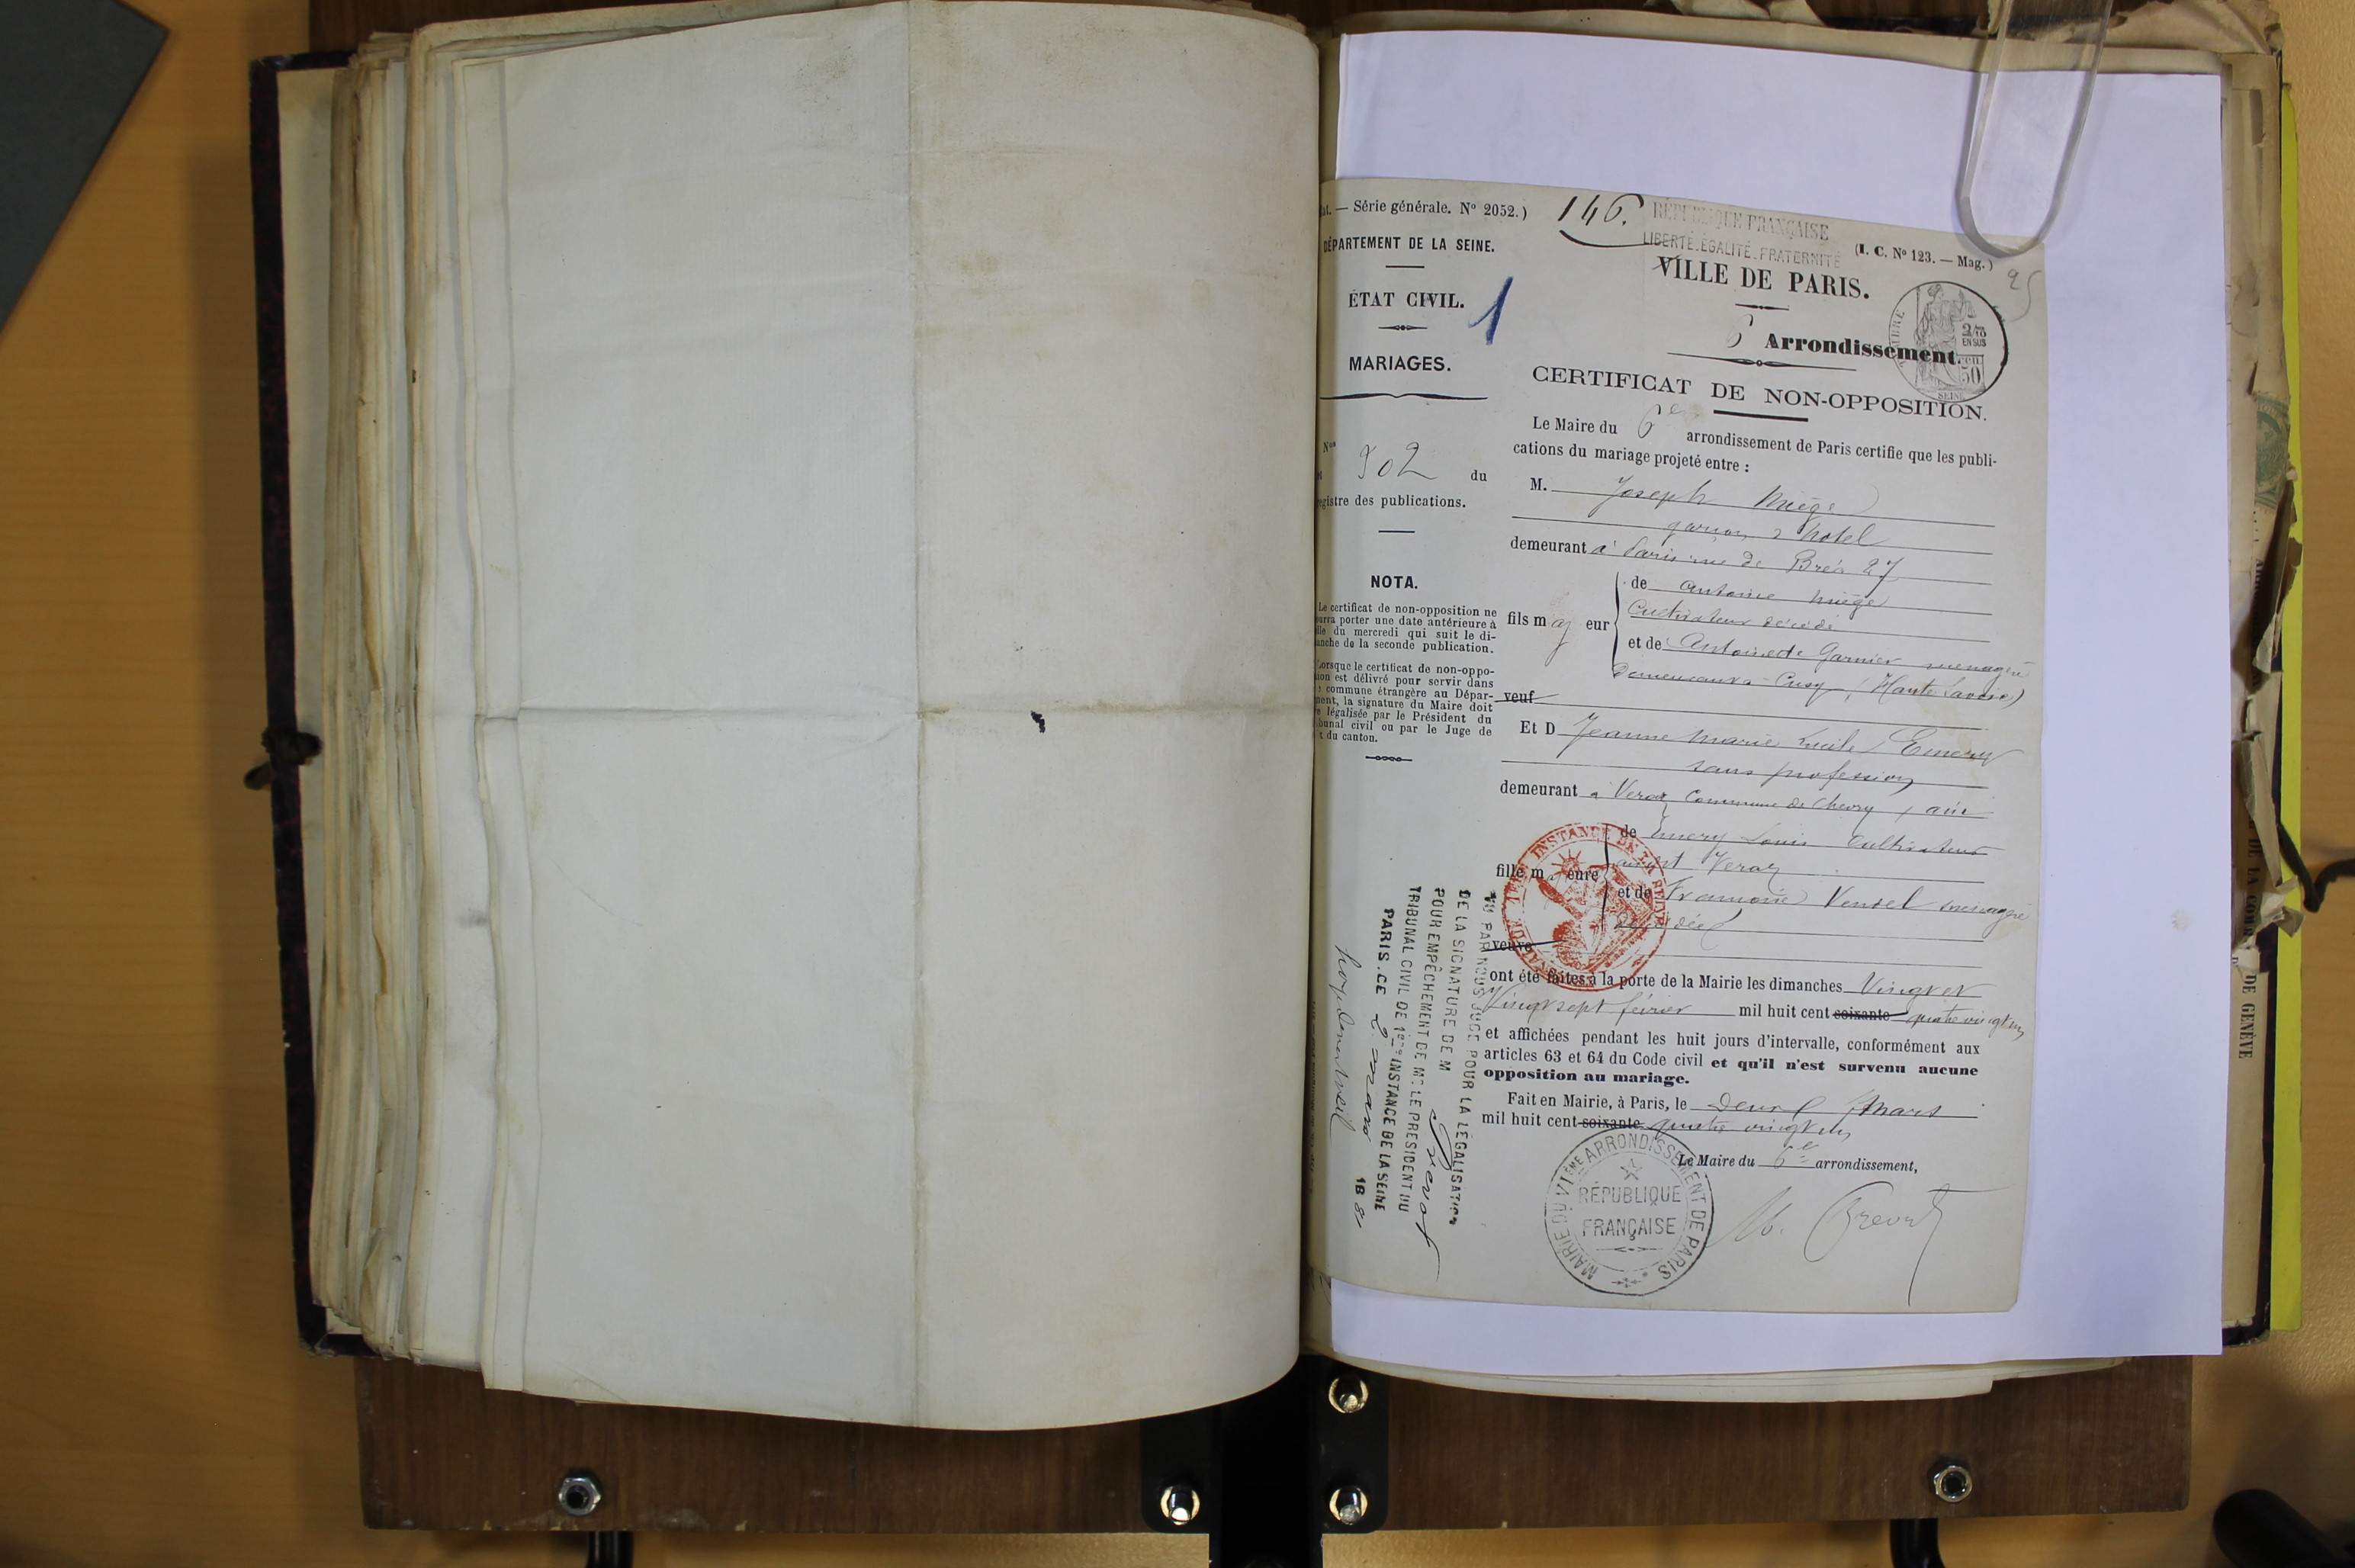 at. — Série générale. Nº 2052.)
146.
RÉPUBLIQUE FRANÇAISE
LIBERTÉ_EGALITÉ_FRATERNITÉ
(I. C. Nº 123. — Mag.)
25
DÉPARTEMENT DE LA SEINE.
VILLE DE PARIS.
ÉTAT CIVIL.
1
MARIAGES.
6 Arrondissement.
CERTIFICAT DE NON-OPPOSITION.
Nos
302 du
registre des publications.
NOTA.
Le certificat de non-opposition ne
ourra porter une date antérieure à
lle du mercredi qui suit le di-
anche de la seconde publication.
Lorsque le certificat de non-oppo-
ion est délivré pour servir dans
e commune étrangère au Dépar-
ment, la signature du Maire doit
e légalisée par le Président du
bunal civil ou par le Juge de
x du canton.
Le Maire du 6e arrondissement de Paris certifie que les publi-
cations du mariage projeté entre :
M. Joseph Miège
garçon d'hotel
demeurant à Paris rue de Bréa 27
fils majeur
de Antoine Miège
Cultivateur décédé
et de Antoinette Garnier menagère
Demeurant a Cusy (Haute Savoie)
veuf
Et D Jeanne Marie Lucile Emery
sans profession
demeurant a Veraz Commune de Chevry, ain
fille m eure
de Emery Louis Cultivateur
Veraz
et de Françoise Vendel menagère
décédée
veuve
ont été faites à la porte de la Mairie les dimanches Vingt et
Vingt sept février mil huit cent soixante quatre vingt un
et affichées pendant les huit jours d'intervalle, conformément aux
articles 63 et 64 du Code civil et qu'il n'est survenu aucune
opposition au mariage.
Fait en Mairie, à Paris, le Deux Mars
mil huit cent soixante quatre vingt un
Le Maire du 6e arrondissement,
MAIRIE DU VIÈME ARRONDISSEMENT DE PARIS
RÉPUBLIQUE
FRANÇAISE
VU PAR NOUS JUGE POUR LA LÉGALISATION
DE LA SIGNATURE DE M
POUR EMPÊCHEMENT DE Mr LE PRESIDENT DU
TRIBUNAL CIVIL DE 1ère INSTANCE DE LA SEINE
PARIS. CE 2 mars 1881
DE GENÈVE